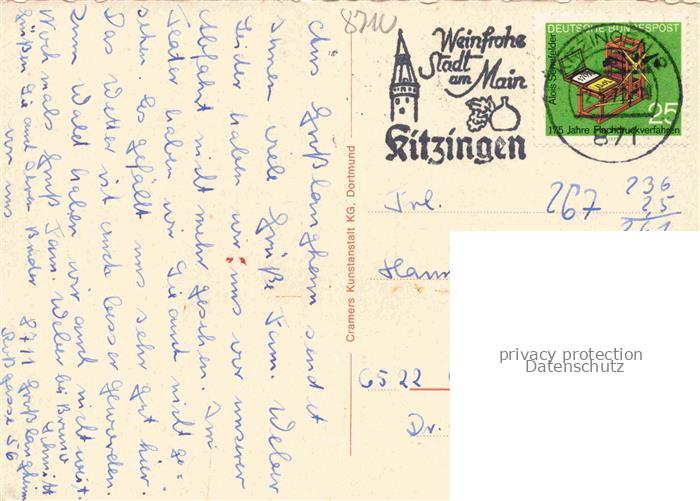 Aus Großlangheim sendet
Ihnen viele Grüße Fam. Weber
Leider haben wir uns vor unserer
Abfahrt nicht mehr gesehen. Im
Teater haben wir Sie auch nicht ge-
sehen Es gefällt uns sehr gut hier.
Das Wetter ist auch besser geworden.
Zum Wald haben wir auch nicht weit.
Noch mals Gruß Fam. Weber bei Bruno Schmitt
Grüßen Sie auch Ihren Bruder
von uns
8711 Großlangheim
Roßgasse 56
8710
Weinfrohe
Stadt
am Main
Kitzingen
DEUTSCHE BUNDESPOST
Alois Senefelder
25
175 Jahre Flachdruckverfahren
871
Cramers Kunstanstalt KG, Dortmund
Frl.
267
236
25
261
Hann
6522
Dr.
privacy protection
Datenschutz